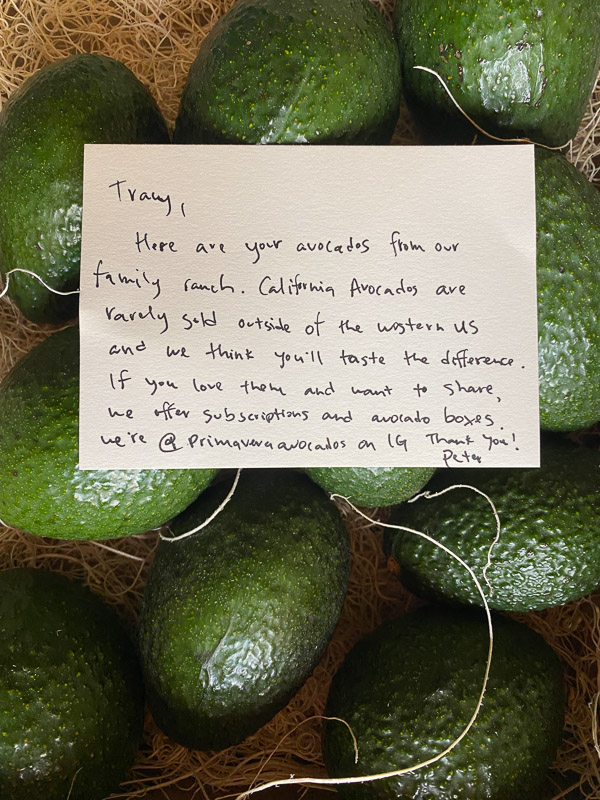 Tracy,
Here are your avocados from our
family ranch. California Avocados are
rarely sold outside of the western US
and we think you'll taste the difference.
If you love them and want to share,
we offer subscriptions and avocado boxes.
we're @primaveraavocados on IG Thank You!
Peter